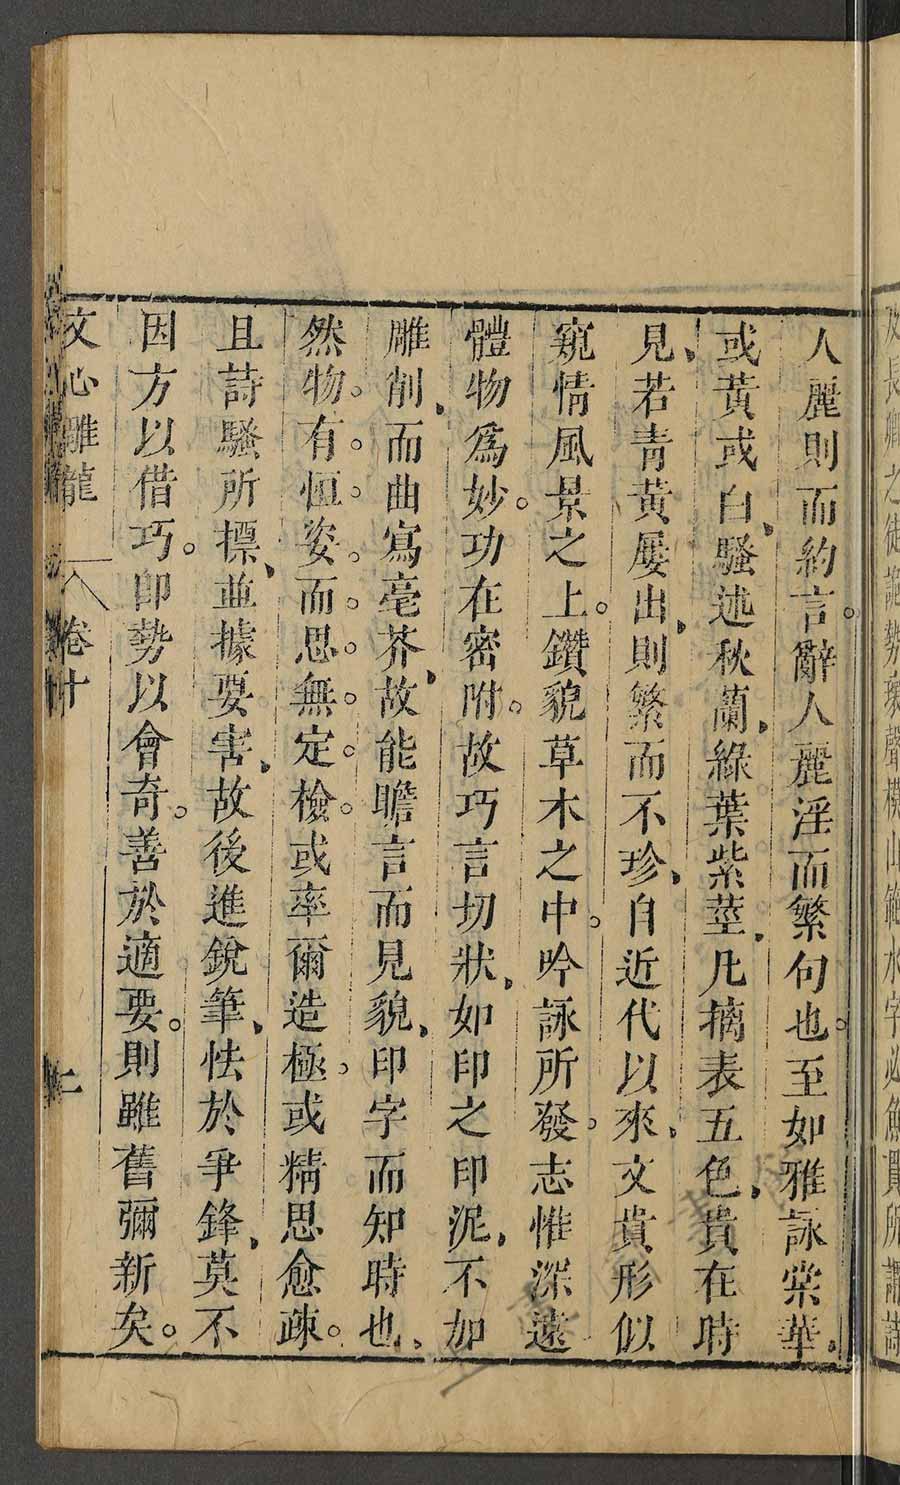 及長卿之徒詭勢瓌聲模山範水字必魚貫所謂詩
人麗則而約言。辭人麗淫而繁句也。至如雅詠棠華、
或黃或白、騷述秋蘭、綠葉紫莖、凡摛表五色、貴在時
見、若青黃屢出、則繁而不珍、自近代以來、文貴形似
窺情風景之上。鑽貌草木之中。吟詠所發。志惟深遠
體物爲妙。功在密附。故巧言切狀、如印之印泥、不加
雕削、而曲寫毫芥、故能瞻言而見貌、印字而知時也、
然物。有。恒。姿。而。思。無。定。檢。或率爾造極、或精思愈疎。
且詩騷所摽、並據要害、故後進銳筆、怯於爭鋒、莫不
因方以借巧。卽勢以會奇。善於適要。則雖舊彌新矣。
文心雕龍 卷十 二